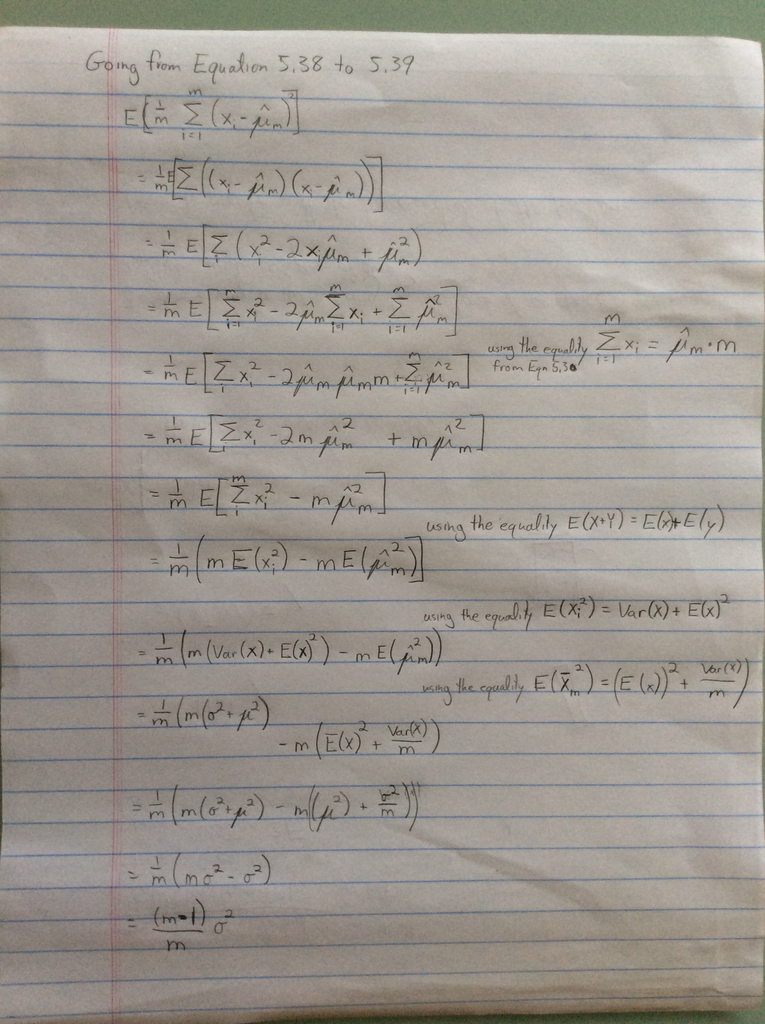 Going from Equation 5.38 to 5.39
E[1/m Σ_{i=1}^{m} (x_i - μ̂_m)²]
= 1/m E[Σ((x_i - μ̂_m)(x_i - μ̂_m))]
= 1/m E[Σ_i (x_i² - 2x_i μ̂_m + μ̂_m²)
= 1/m E[Σ_{i=1}^{m} x_i² - 2μ̂_m Σ_{i=1}^{m} x_i + Σ_{i=1}^{m} μ̂_m²]
using the equality Σ_{i=1}^{m} x_i = μ̂_m · m
from Eqn 5.36
= 1/m E[Σ_i x_i² - 2μ̂_m μ̂_m m + Σ_{i=1}^{m} μ̂_m²]
= 1/m E[Σ_i x_i² - 2m μ̂_m² + m μ̂_m²]
= 1/m E[Σ_i^m x_i² - m μ̂_m²]
using the equality E(X+Y) = E(x)+E(y)
= 1/m (m E(x_i²) - m E(μ̂_m²)]
using the equality E(x_i²) = Var(x) + E(x)²
= 1/m (m(Var(x) + E(x)²) - m E(μ̂_m²))
using the equality E(X̄_m²) = (E(x))² + Var(x)/m)
= 1/m (m(σ² + μ²)
- m(E(x)² + Var(x)/m))
= 1/m (m(σ² + μ²) - m((μ²) + σ²/m))
= 1/m (mσ² - σ²)
= (m-1)/m σ²